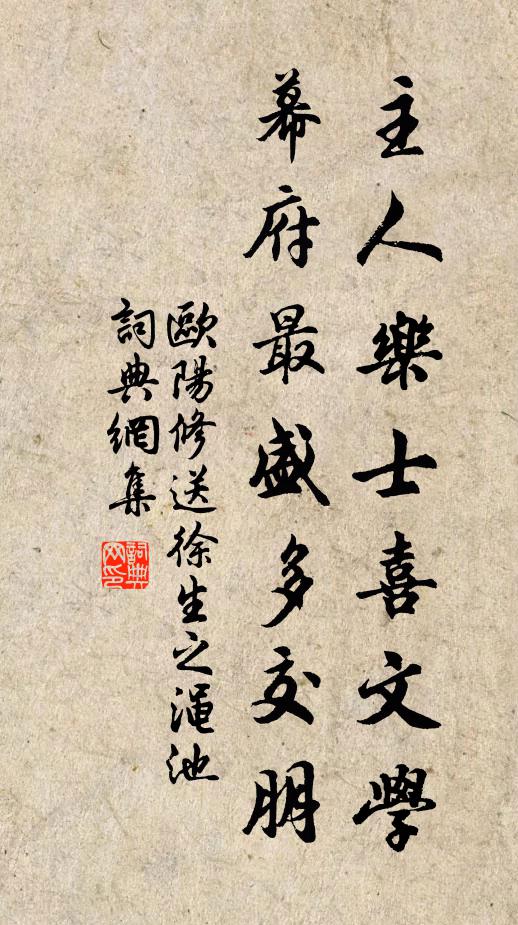 主人樂士喜文學
幕府最盛多交朋
歐陽修送徐生之澠池
詞典網集
詞典網印